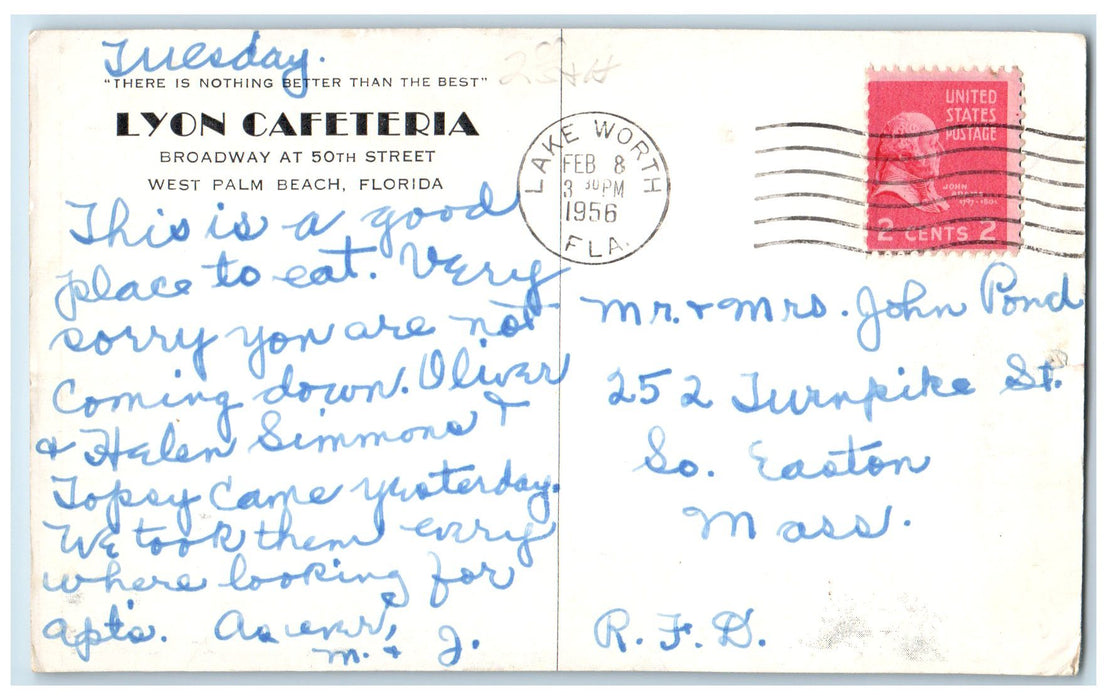 Tuesday.
"THERE IS NOTHING BETTER THAN THE BEST"
LYON CAFETERIA
BROADWAY AT 50TH STREET
WEST PALM BEACH, FLORIDA
This is a good
place to eat. Very
sorry you are not
coming down. Oliver
& Helen Simmons &
Topsy came yesterday.
We took them every
where looking for
apts. As ever,
M. & J.
LAKE WORTH
FEB 8
3 30 PM
1956
FLA.
UNITED
STATES
POSTAGE
JOHN
2 CENTS 2
Mr. & Mrs. John Pond
252 Turnpike St.
So. Easton
Mass.
R.F.D.